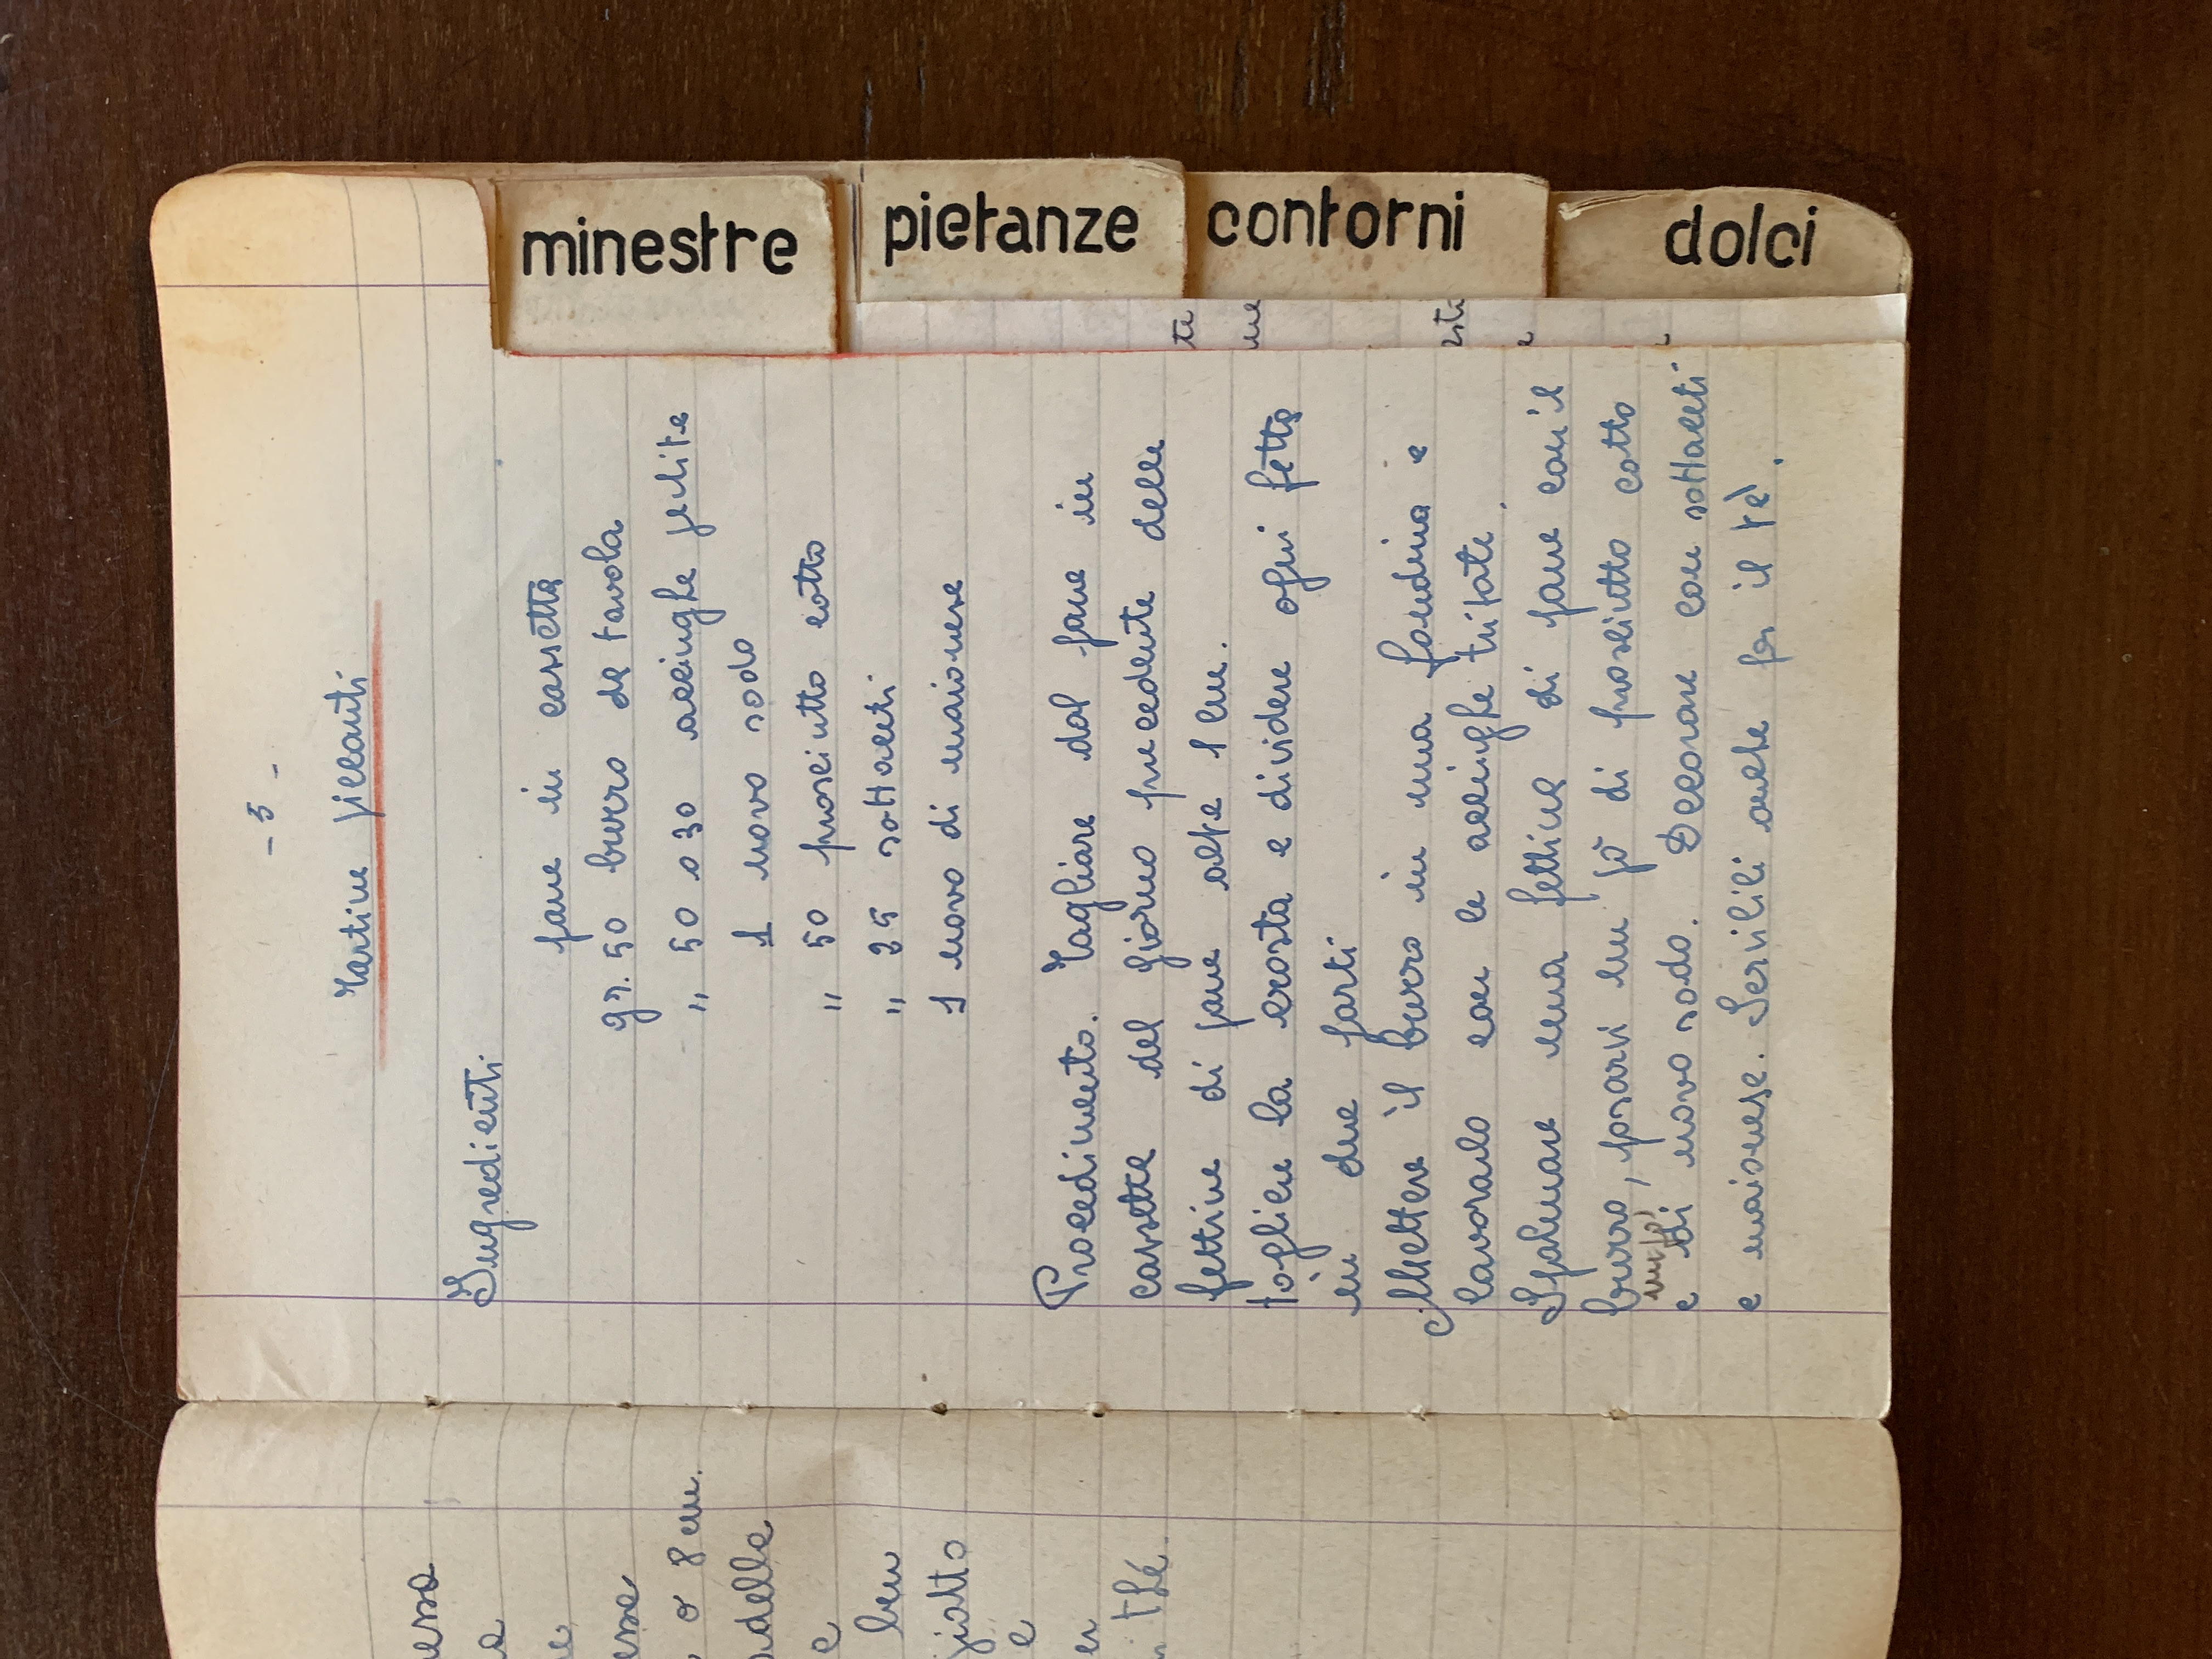 essa
a
e
esse
o 8 cm.
adella
e
ben
giatto
e
er
thé.
- 5 -
Tartine piccanti
Ingredienti
pane in cassetta
gr. 50 burro da tavola
" 50 o 30 acciughe pulite
1 uovo sodo
" 50 prosciutto cotto
" 25 sottaceti
1 uovo di maionese
Procedimento. Tagliare dal pane in
cassetta del giorno precedente delle
fettine di pane alte 1 cm.
togliere la crosta e dividere ogni fetta
in due parti
Mettere il burro in una fondina e
lavorarlo con le acciughe tritate.
Spalmare una fettina di pane con il
burro, posarvi un pò di prosciutto cotto
un po'
e di uovo sodo. Decorare con sottaceti
e maionese. Servilili anche per il tè.
minestre
pietanze
contorni
dolci
te
ne